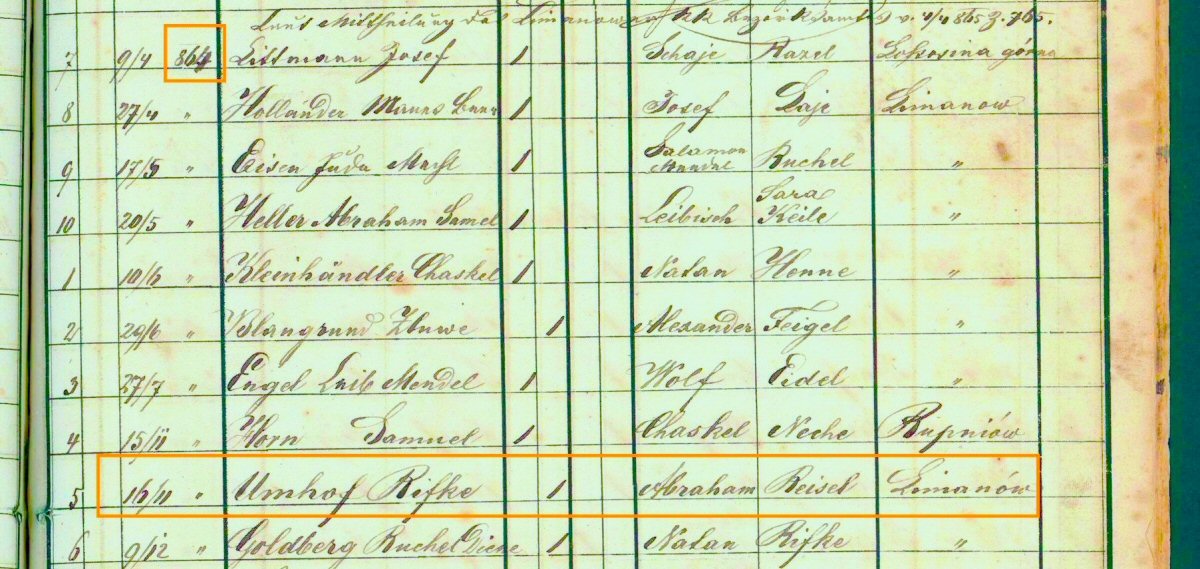 Laut Mittheilung des Limanower kk Bezirksamtes v. 4/4 865 Z. 765.
7 9/4 864 Littmann Josef 1 Schaje Hazel Łossosina górna
8 27/4 " Holländer Manns 1 Josef Laje Limanow
9 17/5 " Eisen Juda 1 Salamon Mendel Ruchel "
10 20/5 " Heller Abraham Samel 1 Leibisch Sara Keile "
1 10/6 " Kleinhändler Chaskel 1 Natan Henne "
2 29/6 " Blangrund 1 Alexander Feigel "
3 27/7 " Engel Leib Mendel 1 Wolf Eidel "
4 15/11 " Horn Samuel 1 Chaskel Neche Rupniów
5 16/11 " Umhof Rifke 1 Abraham Reisel Limanów
6 9/12 " Goldberg Ruchel Diene 1 Natan Rifke "